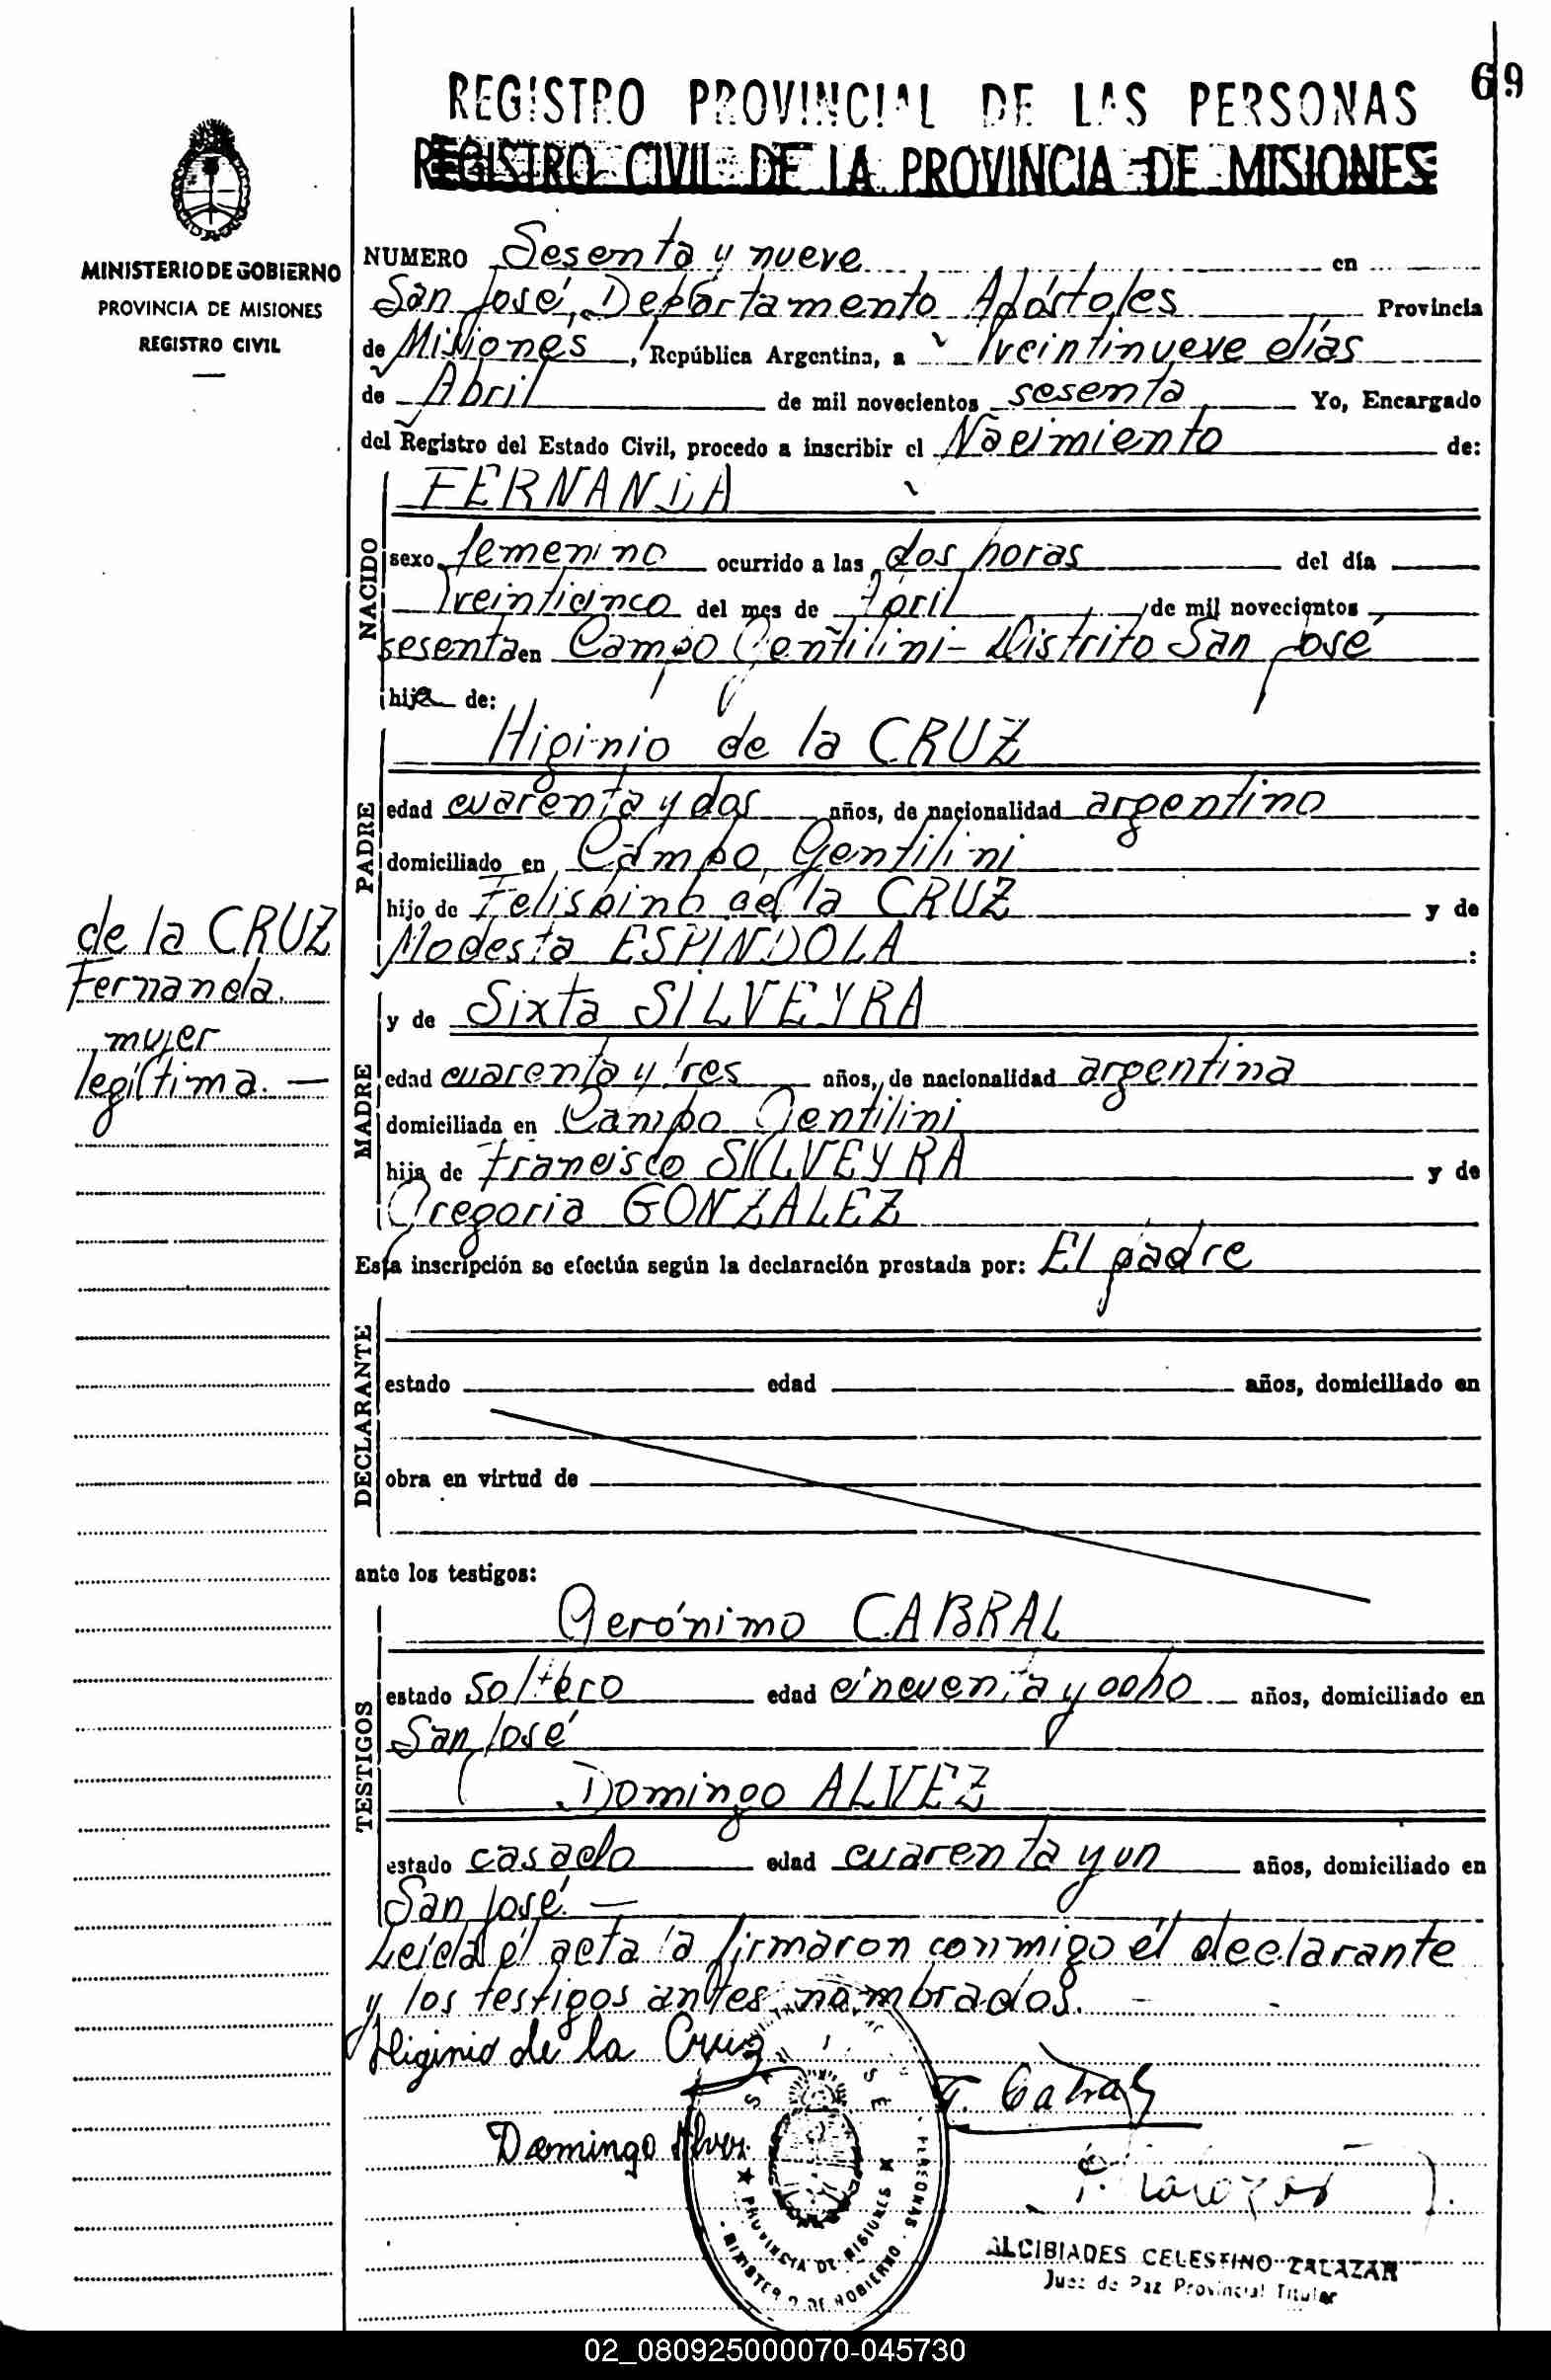 69
REGISTRO PROVINCIAL DE LAS PERSONAS
REGISTRO CIVIL DE LA PROVINCIA DE MISIONES
MINISTERIO DE GOBIERNO
PROVINCIA DE MISIONES
REGISTRO CIVIL
NUMERO Sesenta y nueve en
San José, Departamento Apóstoles Provincia
de Misiones, República Argentina, a Treintinueve días
de Abril de mil novecientos sesenta Yo, Encargado
del Registro del Estado Civil, procedo a inscribir el Nacimiento de:
NACIDO
FERNANDA
sexo femenino ocurrido a las dos horas del día
veinticinco del mes de Abril de mil novecientos
sesenta en Campo Gentilini - Distrito San José
hija de:
PADRE
Higinio de la CRUZ
edad cuarenta y dos años, de nacionalidad argentino
domiciliado en Campo Gentilini
hijo de de la CRUZ y de
Modesta ESPINDOLA :
de la CRUZ
Fernanda.
mujer
legítima. —
MADRE
y de Sixta SILVEYRA
edad cuarenta y tres años, de nacionalidad argentina
domiciliada en Campo Gentilini
hija de Francisco SILVEYRA y de
Gregoria GONZALEZ
Esta inscripción se efectúa según la declaración prestada por: El padre
DECLARANTE
estado edad años, domiciliado en
obra en virtud de
ante los testigos:
TESTIGOS
Gerónimo CABRAL
estado soltero edad cincuenta y ocho años, domiciliado en
San José
Domingo ALVEZ
estado casado edad cuarenta y un años, domiciliado en
San José. —
Leída el acta la firmaron conmigo el declarante
y los testigos antes nombrados. —
Higinio de la Cruz
G. Cabral
Domingo Alvez
PROVINCIA DE MISIONES
MINISTERIO DE GOBIERNO
ALCIBIADES CELESTINO ZALAZAR
Juez de Paz Provincial Titular
02_080925000070-045730